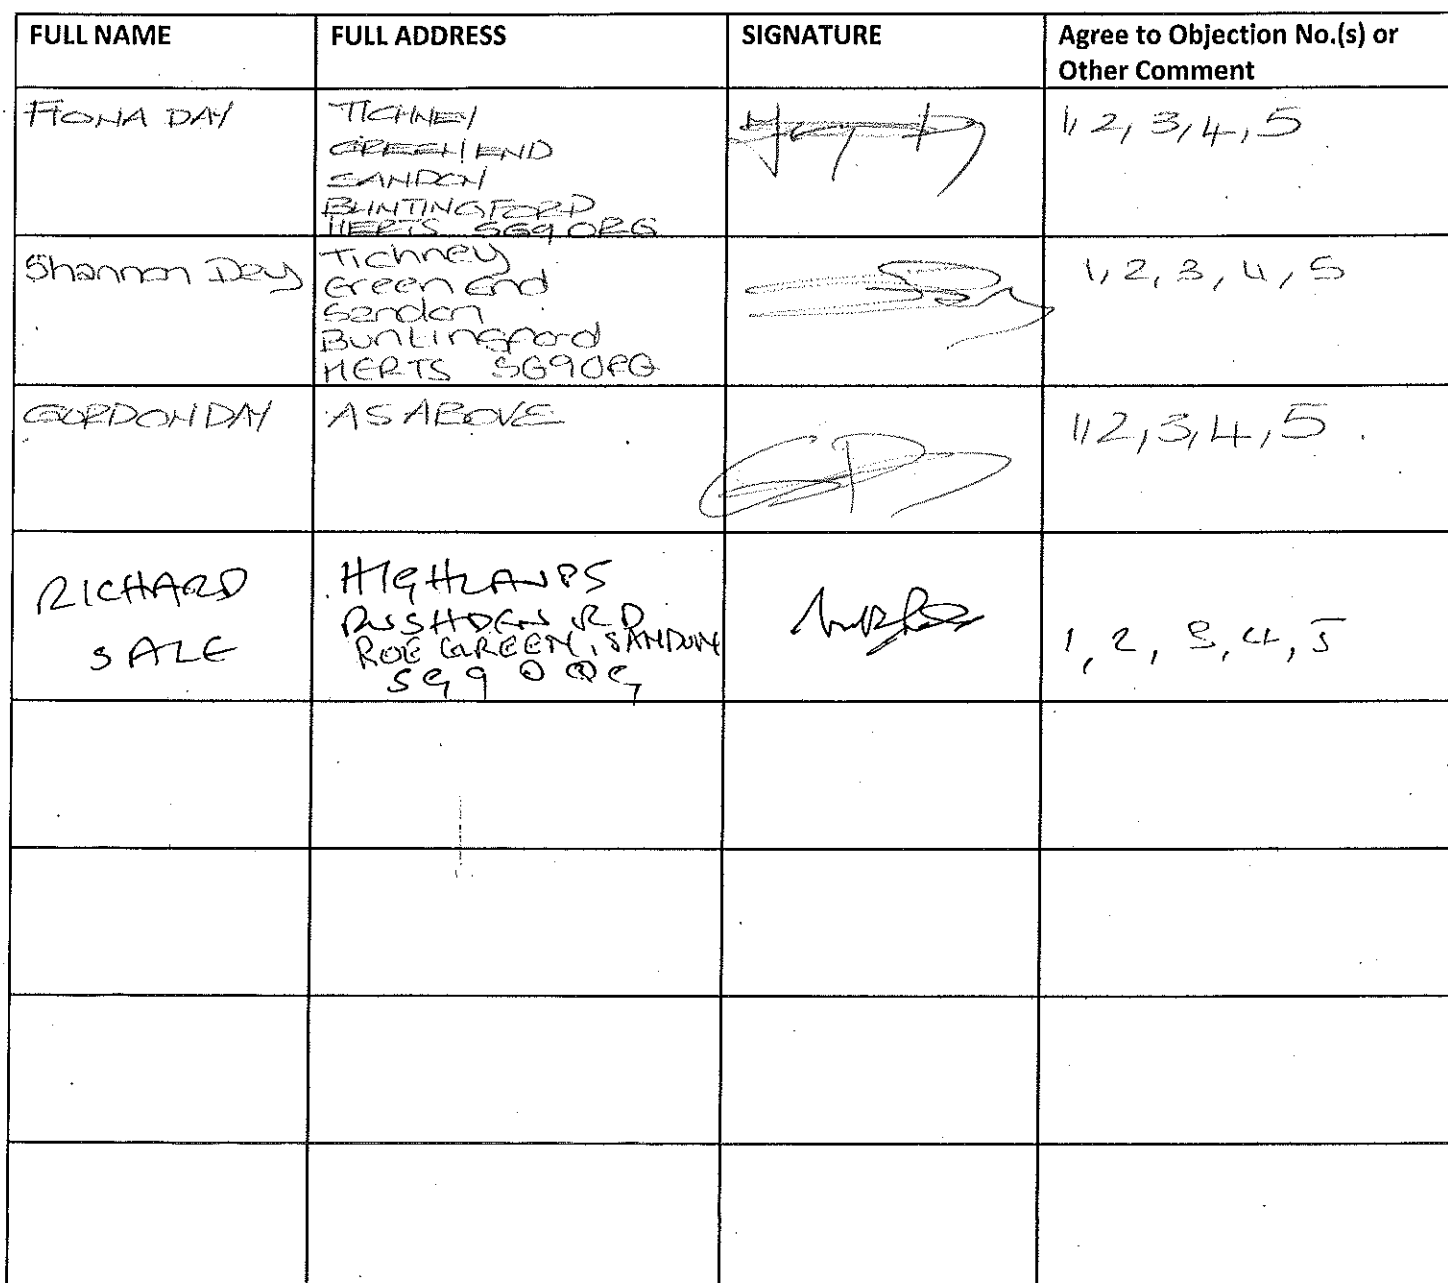 FULL NAME FULL ADDRESS SIGNATURE Agree to Objection No.(s) or
Other Comment
FIONA DAY
TICHNEY
GREEN END
SANDON
BUNTINGFORD
HERTS SG9 0RG
1, 2, 3, 4, 5
Shannon Day
Tichney
Green End
Sandon
Buntingford
HERTS SG9 0RG
1, 2, 3, 4, 5
GORDON DAY
AS ABOVE
1, 2, 3, 4, 5
RICHARD
SALE
HIGHLANDS
RUSHDEN RD
ROE GREEN, SANDON
SG9 0QG
1, 2, 3, 4, 5